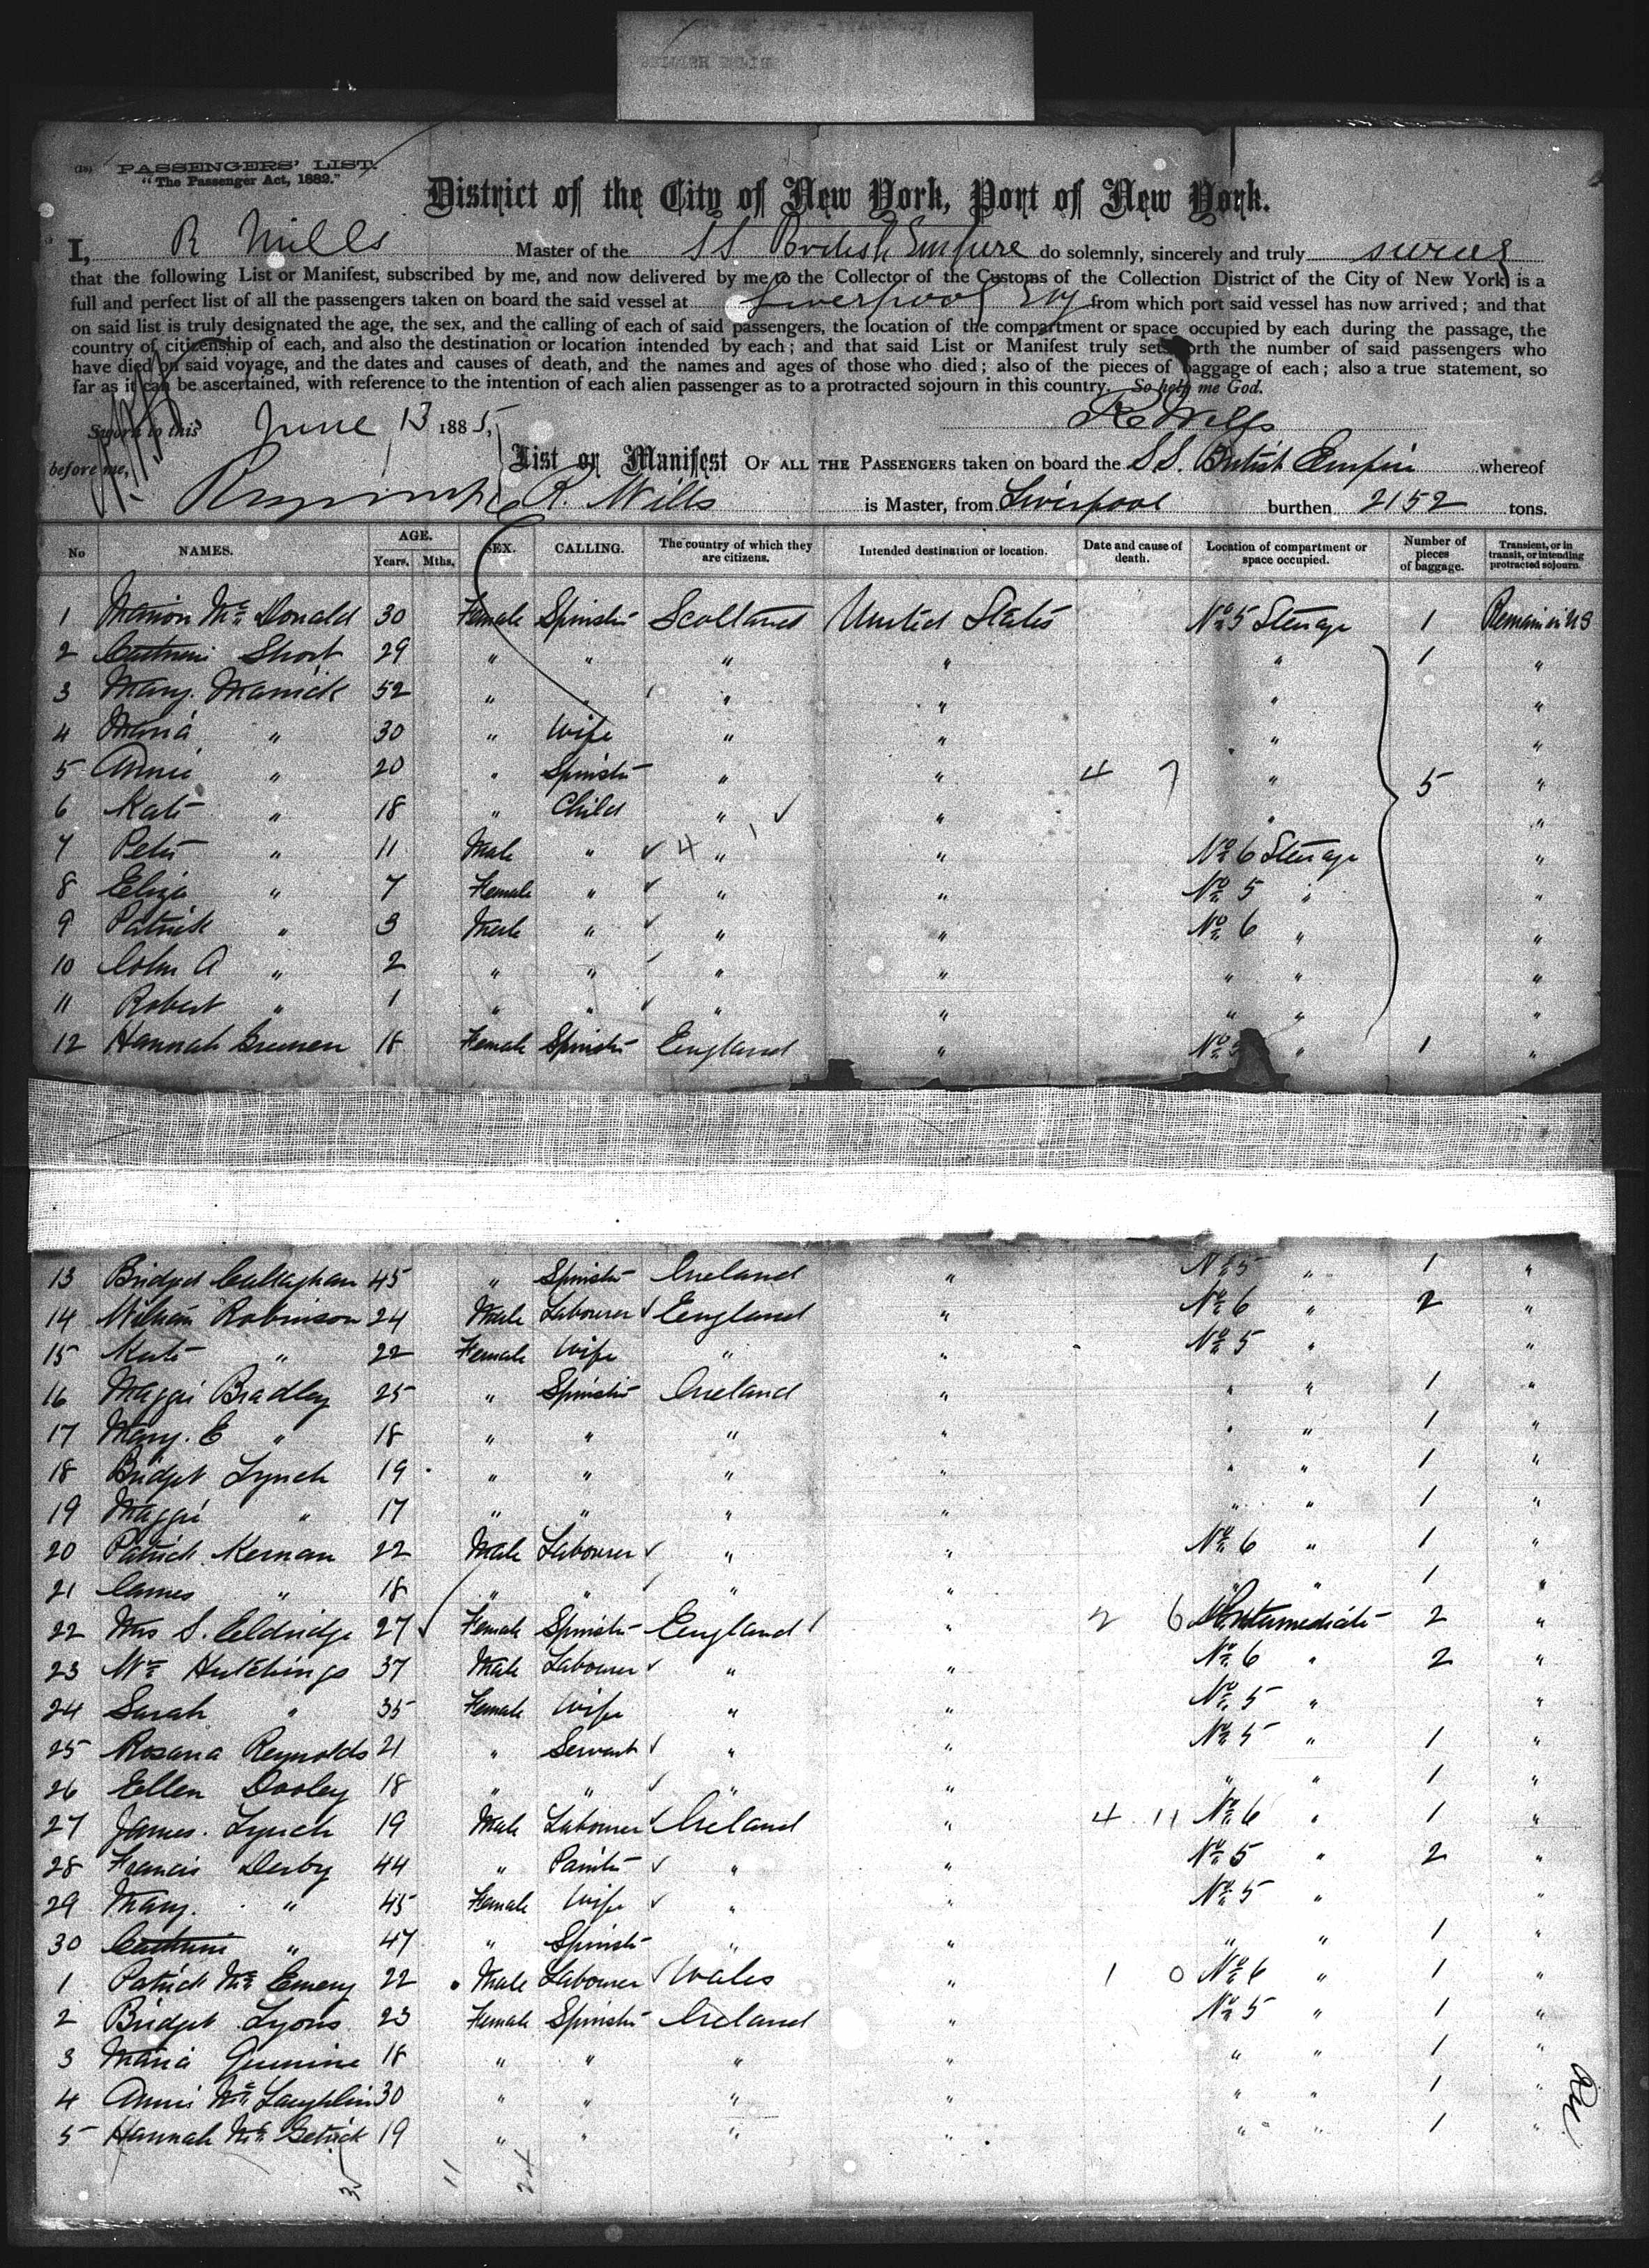 PASSENGERS' LIST.
"The Passenger Act, 1882."
District of the City of New York, Port of New York.
I, R Mills Master of the SS British Empire do solemnly, sincerely and truly swear
that the following List or Manifest, subscribed by me, and now delivered by me to the Collector of the Customs of the Collection District of the City of New York, is a
full and perfect list of all the passengers taken on board the said vessel at Liverpool from which port said vessel has now arrived; and that
on said list is truly designated the age, the sex, and the calling of each of said passengers, the location of the compartment or space occupied by each during the passage, the
country of citizenship of each, and also the destination or location intended by each; and that said List or Manifest truly sets forth the number of said passengers who
have died on said voyage, and the dates and causes of death, and the names and ages of those who died; also of the pieces of baggage of each; also a true statement, so
far as it can be ascertained, with reference to the intention of each alien passenger as to a protracted sojourn in this country. So help me God.
Sworn to this June 13 1885, R Mills
before me, List or Manifest OF ALL THE PASSENGERS taken on board the S.S. British Empire whereof
R. Mills is Master, from Liverpool burthen 2152 tons.
No NAMES. AGE. Years. Mths. SEX. CALLING. The country of which they are citizens. Intended destination or location. Date and cause of death. Location of compartment or space occupied. Number of pieces of baggage. Transient, or in transit, or intending protracted sojourn.
1 Marion Mc Donald 30 Female Spinster Scotland United States No 5 Steerage 1 Remain in US
2 Cathrine Short 29 " " " " " 1 "
3 Mary Manick 52 " " " " " "
4 Maria " 30 " Wife " " " "
5 Annie " 20 " Spinster " " 4 7 " 5 "
6 Kate " 18 " Child " " " "
7 Peter " 11 Male " 4 " " No 6 Steerage "
8 Eliza " 7 Female " " " No 5 " "
9 Patrick " 3 Male " " " No 6 " "
10 John A " 2 " " " " " " "
11 Robert " 1 " " " " " " "
12 Hannah 18 Female Spinster England " No 5 " 1 "
13 Bridget Callaghan 45 " Spinster Ireland " No 5 " 1 "
14 William Robinson 24 Male Labourer England " No 6 " 2 "
15 Kate " 22 Female Wife " " No 5 " "
16 Maggie Bradley 25 " Spinster Ireland " " " 1 "
17 Mary. E " 18 " " " " " " 1 "
18 Bridget Lynch 19 " " " " " " 1 "
19 Maggie " 17 " " " " " " 1 "
20 Patrick Kernan 22 Male Labourer " " No 6 " 1 "
21 James " 18 " " " " " " 1 "
22 Mrs S. Eldridge 27 Female Spinster England " 2 6 Intermediate 2 "
23 Wm Hutchings 37 Male Labourer " " No 6 " 2 "
24 Sarah " 35 Female Wife " " No 5 " "
25 Rosana Reynolds 21 " Servant " " No 5 " 1 "
26 Ellen Dooley 18 " " " " " " 1 "
27 James. Lynch 19 Male Labourer Ireland " 4 11 No 6 " 1 "
28 Francis Derby 44 " Painter " " No 5 " 2 "
29 Mary. " 45 Female Wife " " No 5 " "
30 Cathrine " 47 " Spinster " " " " 1 "
1 Patrick Mc Emery 22 Male Labourer Wales " 1 0 No 6 " 1 "
2 Bridget Lyons 23 Female Spinster Ireland " No 5 " 1 "
3 Maria 18 " " " " " " 1 "
4 Annie Mc Laughlin 30 " " " " " " 1 "
5 Hannah Mc Getrick 19 " " " " " " 1 "
11 24